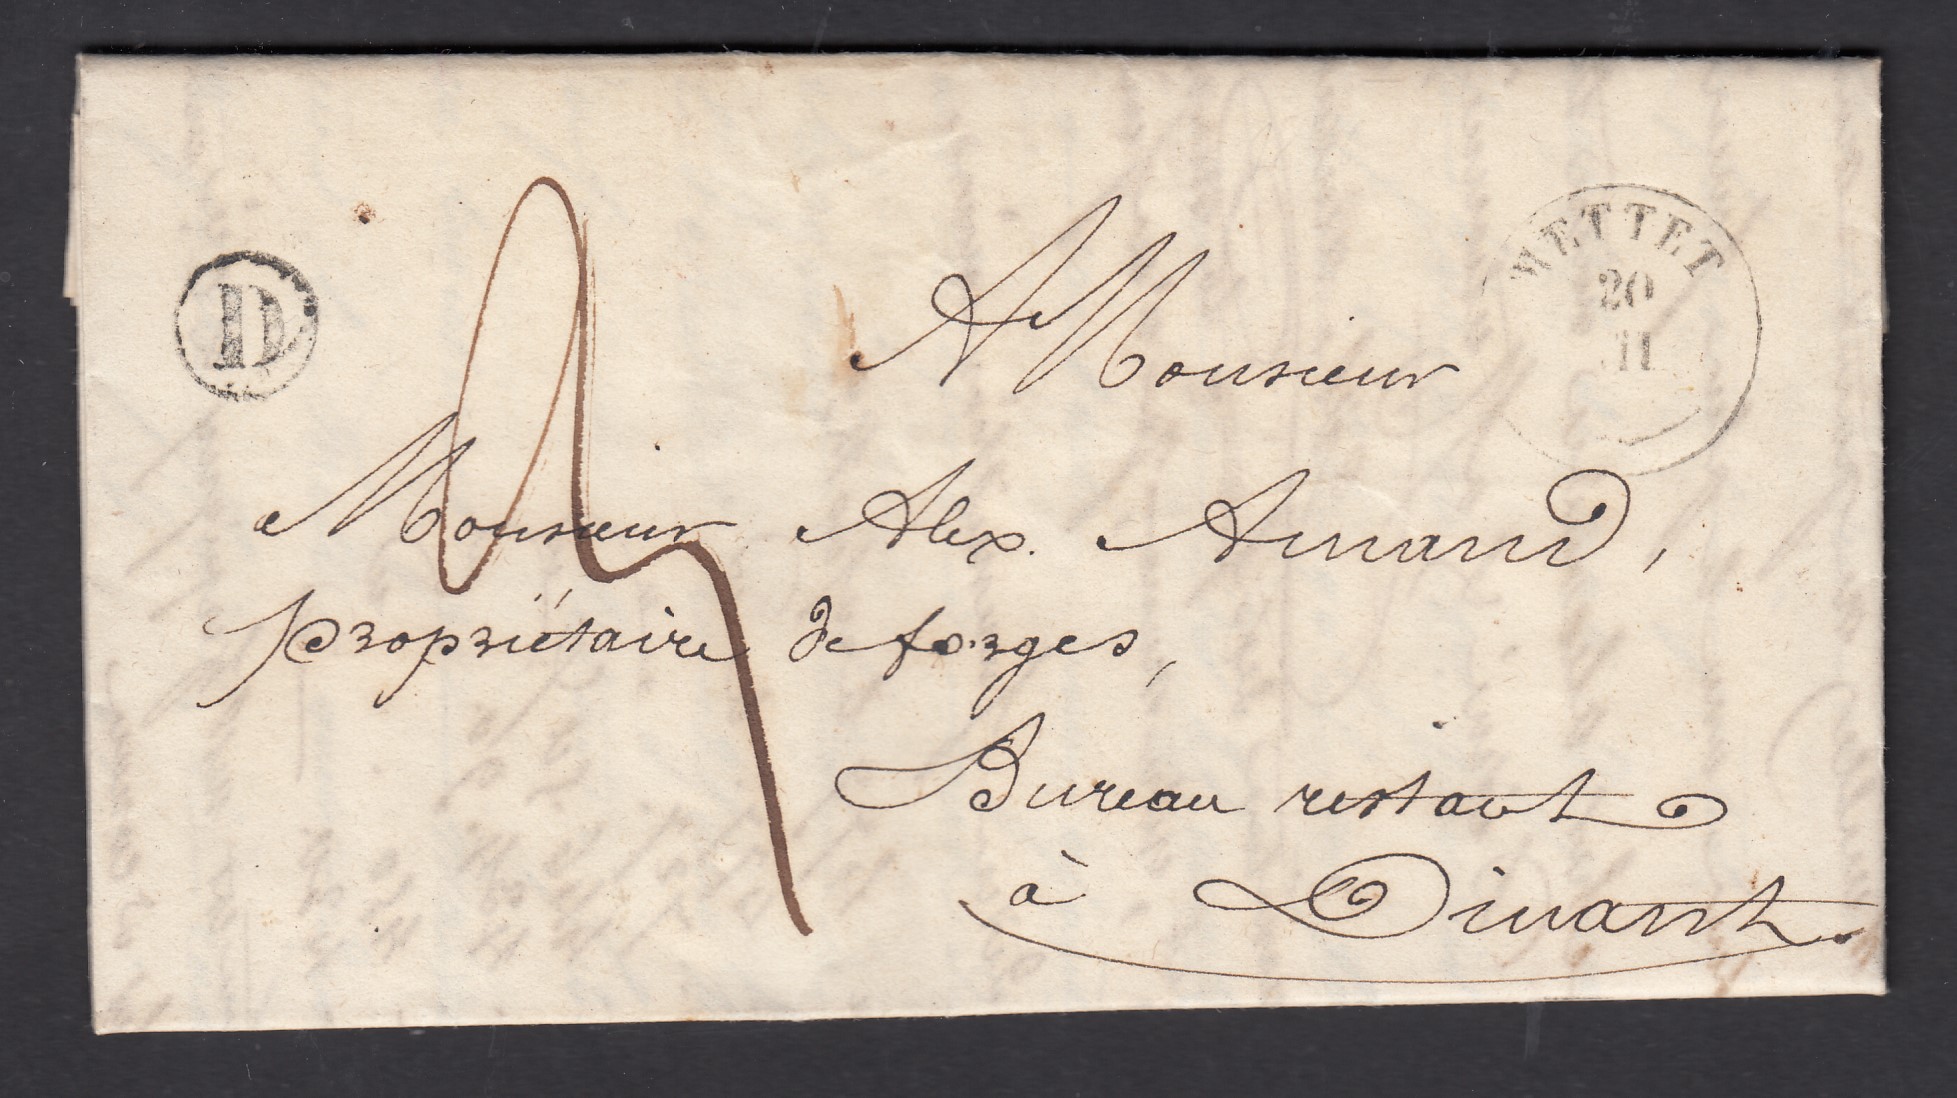 D
METTET
20
11
A Monsieur
Monsieur Alex. Amand,
propriétaire de forges,
Bureau restant
à Dinant.